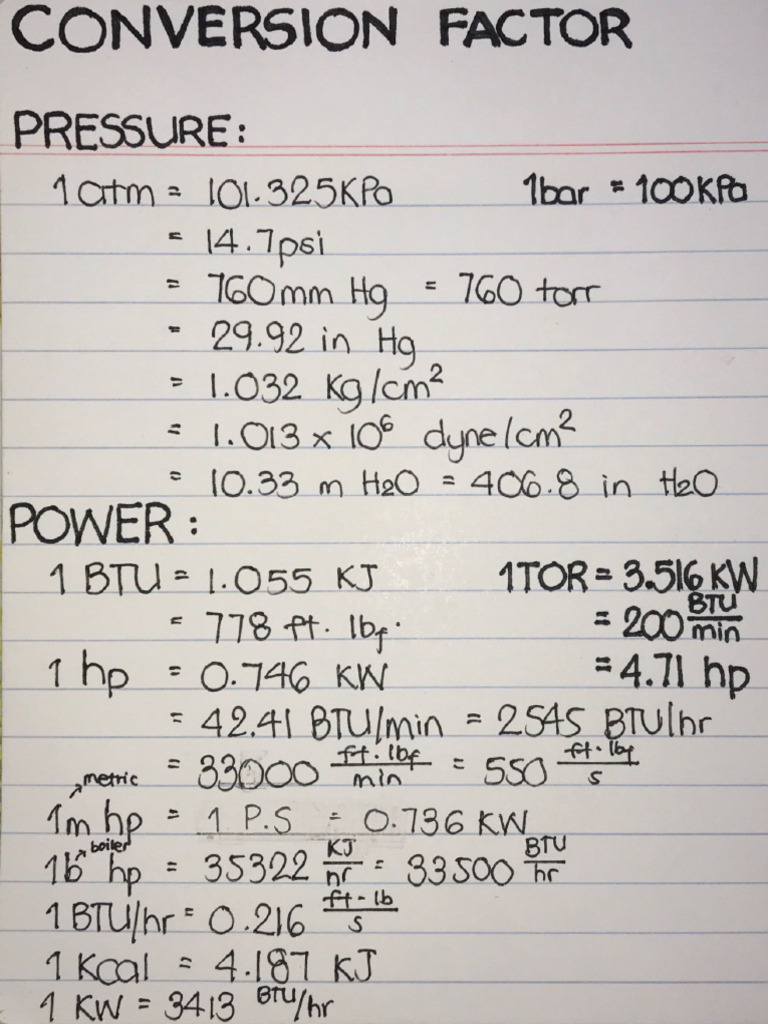 CONVERSION FACTOR
PRESSURE:
1 atm = 101.325KPa 1bar = 100KPa
= 14.7psi
= 760mm Hg = 760 torr
= 29.92 in Hg
= 1.032 Kg/cm²
= 1.013 x 10⁶ dyne/cm²
= 10.33 m H2O = 406.8 in H2O
POWER:
1 BTU = 1.055 KJ 1TOR = 3.516 KW
= 778 ft. lbf. = 200 BTU/min
1 hp = 0.746 KW = 4.71 hp
= 42.41 BTU/min = 2545 BTU/hr
= 33000 ft.lbf/min = 550 ft.lbf/s
metric
1m hp = 1 P.S = 0.736 KW
boiler
1b hp = 35322 KJ/hr = 33500 BTU/hr
1 BTU/hr = 0.216 ft-lb/s
1 Kcal = 4.187 KJ
1 KW = 3413 BTU/hr